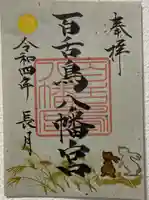 奉拝
百舌鳥八幡宮
令和四年 長月